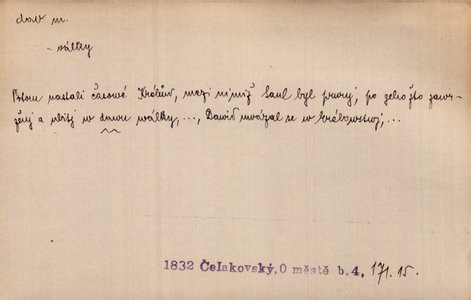 dav m.
- války
Potom nastali časowé Králůw, mezi nimiž Saul byl prwý, po gehožto zawr-
žený a ubitý w dawu wálky, ..., Dawid uwázal se w králowstwj, ...
1832 Čelakovský, O městě b. 4, 171. 15.